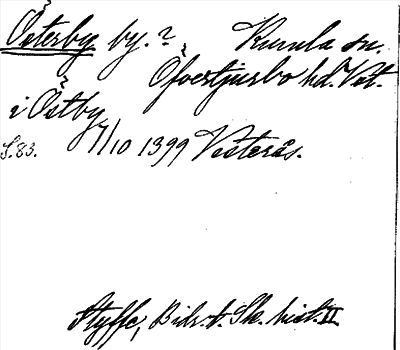 Österby by.? Kumla sn.
Öfvertjurbo hd. Vst.
i Östby
S.83. 7/10 1399 Vesterås.
Styffe, Bidr. t. Sk. hist. II